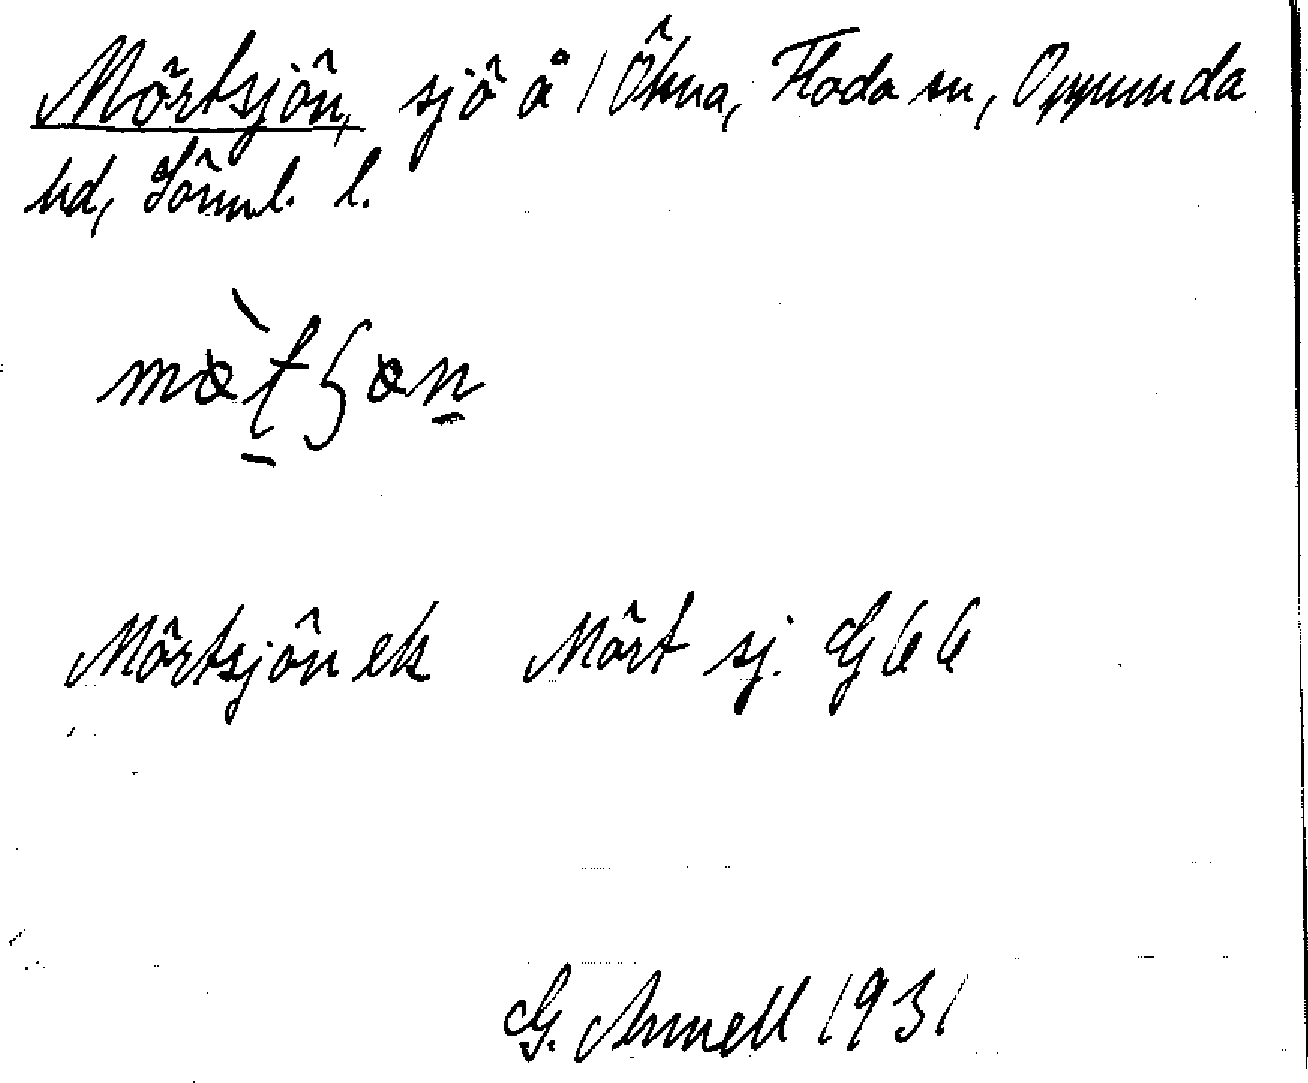 Mörtsjön, sjö å 1 Ökna, Floda sn, Oppunda
hd, Sörml. l.
Mörtsjön ek Mört sj. G 66
G. Annell 1931